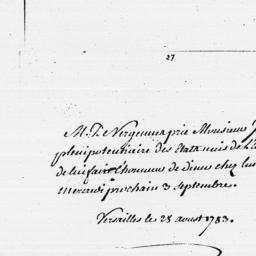 27
M. De Vergennes prie Monsieur
plenipotentiaire des Etats unis de
de lui faire l'honneur de diner chez lui
mercredi prochain 3 septembre.
Versailles le 28 aoust 1783.